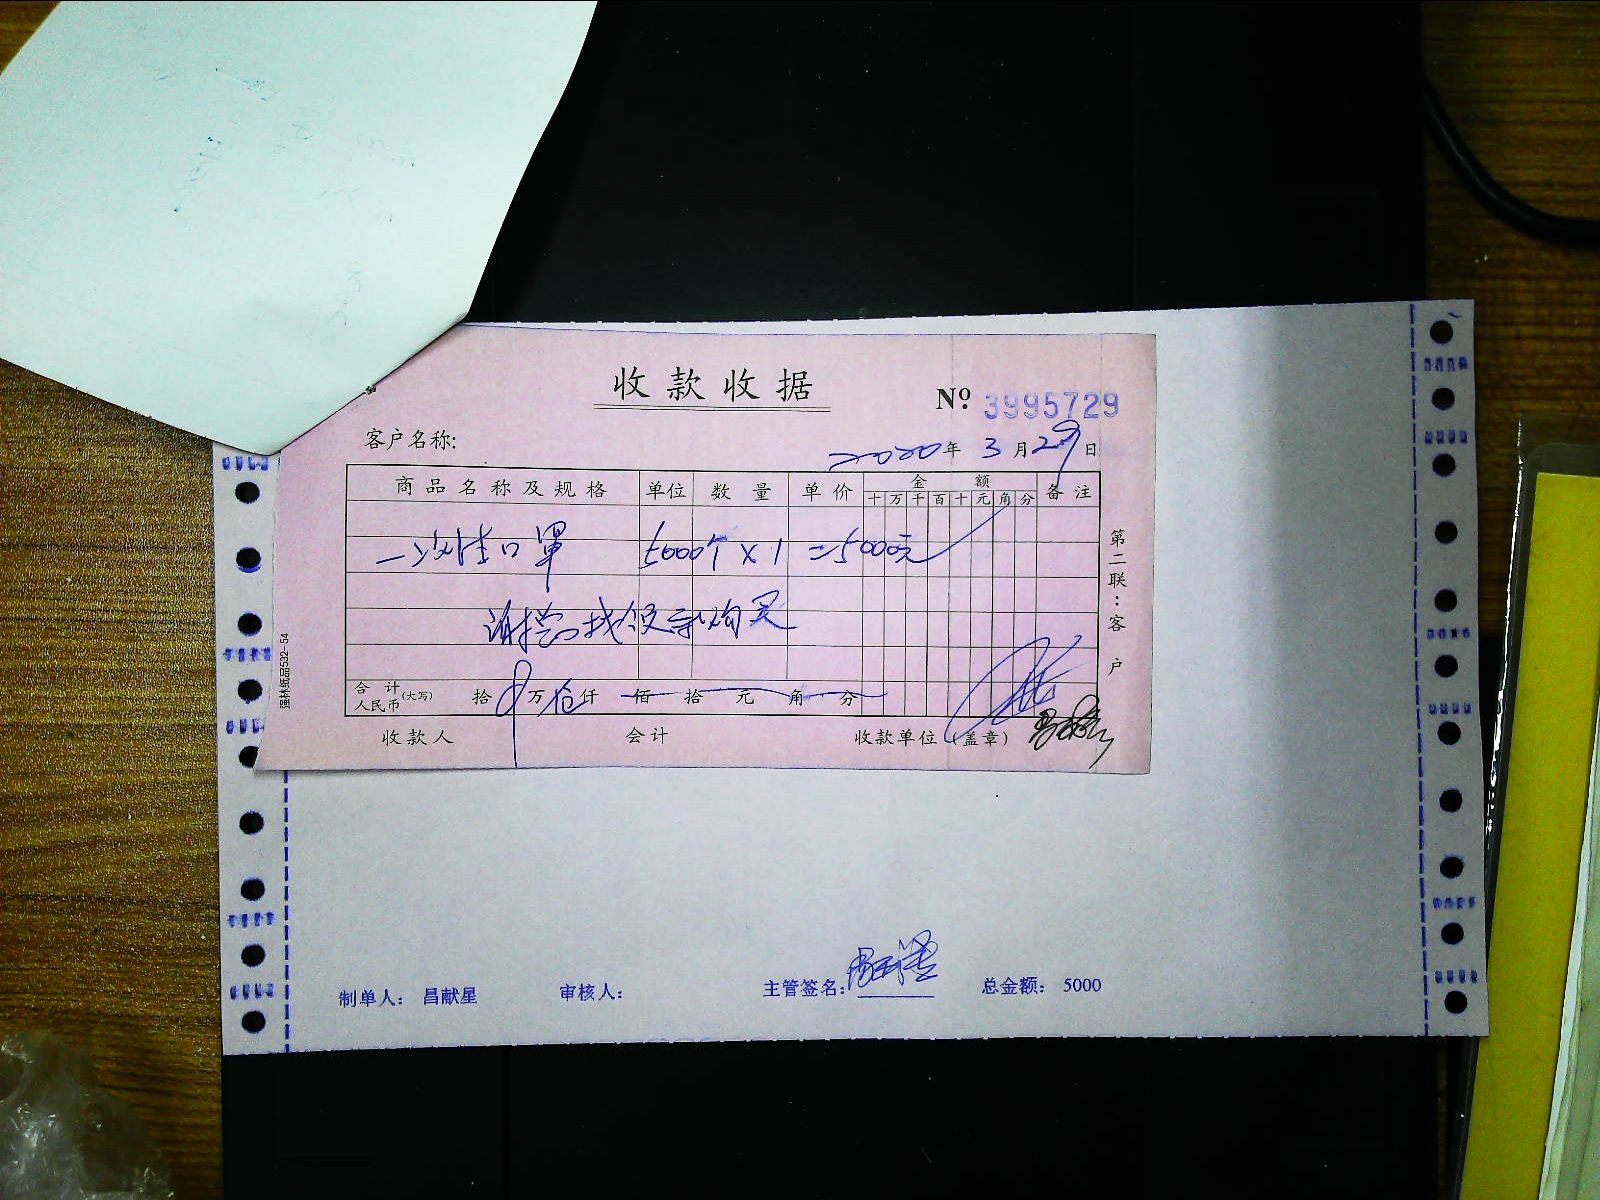 收款收据
№ 3995729
客户名称:
2020年 3月29日
商品名称及规格 单位 数量 单价 金额 备注
十 万 千 百 十 元 角 分
一次性口罩 5000个 × 1 = 5000元
购买
合计人民币(大写) 拾 万 伍仟 佰 拾 元 角 分
收款人 会计 收款单位(盖章)
第二联:客户
强林纸品532-54
制单人: 昌献星 审核人: 主管签名: 总金额: 5000